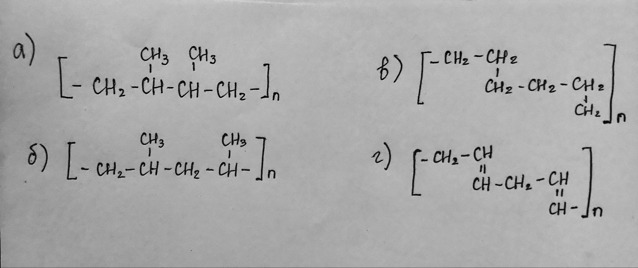 а)
CH3 CH3
[- CH2 -CH -CH -CH2 -]n
б)
CH3 CH3
[- CH2 -CH -CH2 -CH -]n
в)
[- CH2 -CH2
CH2 -CH2 -CH2
CH2 ]n
г)
[- CH2 -CH
CH -CH2 -CH
CH -]n